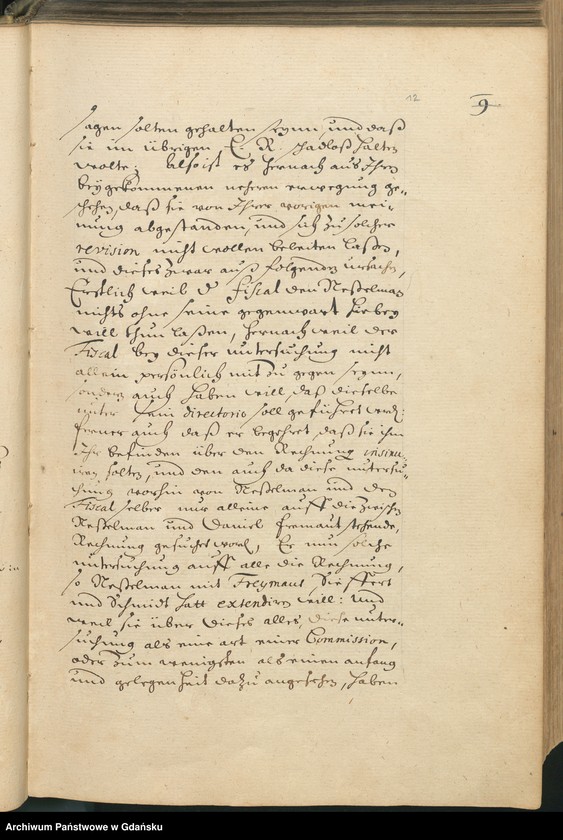 12
9
sagen solten gehalten seyn, und daß
sie im übrigen E. R. schadloß halten
wolte: also ist es hernach aus Ihren
beygekommenen nehern erwegung ge-
schehen, daß sie von Ihrer vorigen mei-
nung abgestanden, und sich zu solcher
revision nicht wollen beleiten laßen,
und dieses zwar auß folgenden ursachen,
Erstlich weil d. Fiscal den Neßelman
nichts ohne seine gegenwart hiebey
will thun laßen, hernach weil der
Fiscal bey dieser untersuchung nicht
allein persönlich mit zu gegen seyn,
sondern auch haben will, daß dieselbe
unter sein directorio soll geführet werd:
ferner auch daß er begehret, daß sie ihm
Ihr befinden über den Rechnung insinu-
iren solten, und den auch da diese untersu-
chung vorhin von Neßelman und den
Fiscal selber nur alleine auff die zwischen
Neßelman und Daniel Fremaut stehende,
Rechnung gesuchet word, Er nun solche
untersuchung auff alle die Rechnung,
so Neßelman mit Freymaut, Sieffert
und Schmidt hatt extendiren will: Und
weil sie über dieses alles, diese unter-
suchung als eine art einer Commission,
oder zum wenigsten als einen anfang
und gelegenheit dazu angesehen, haben
Archiwum Państwowe w Gdańsku